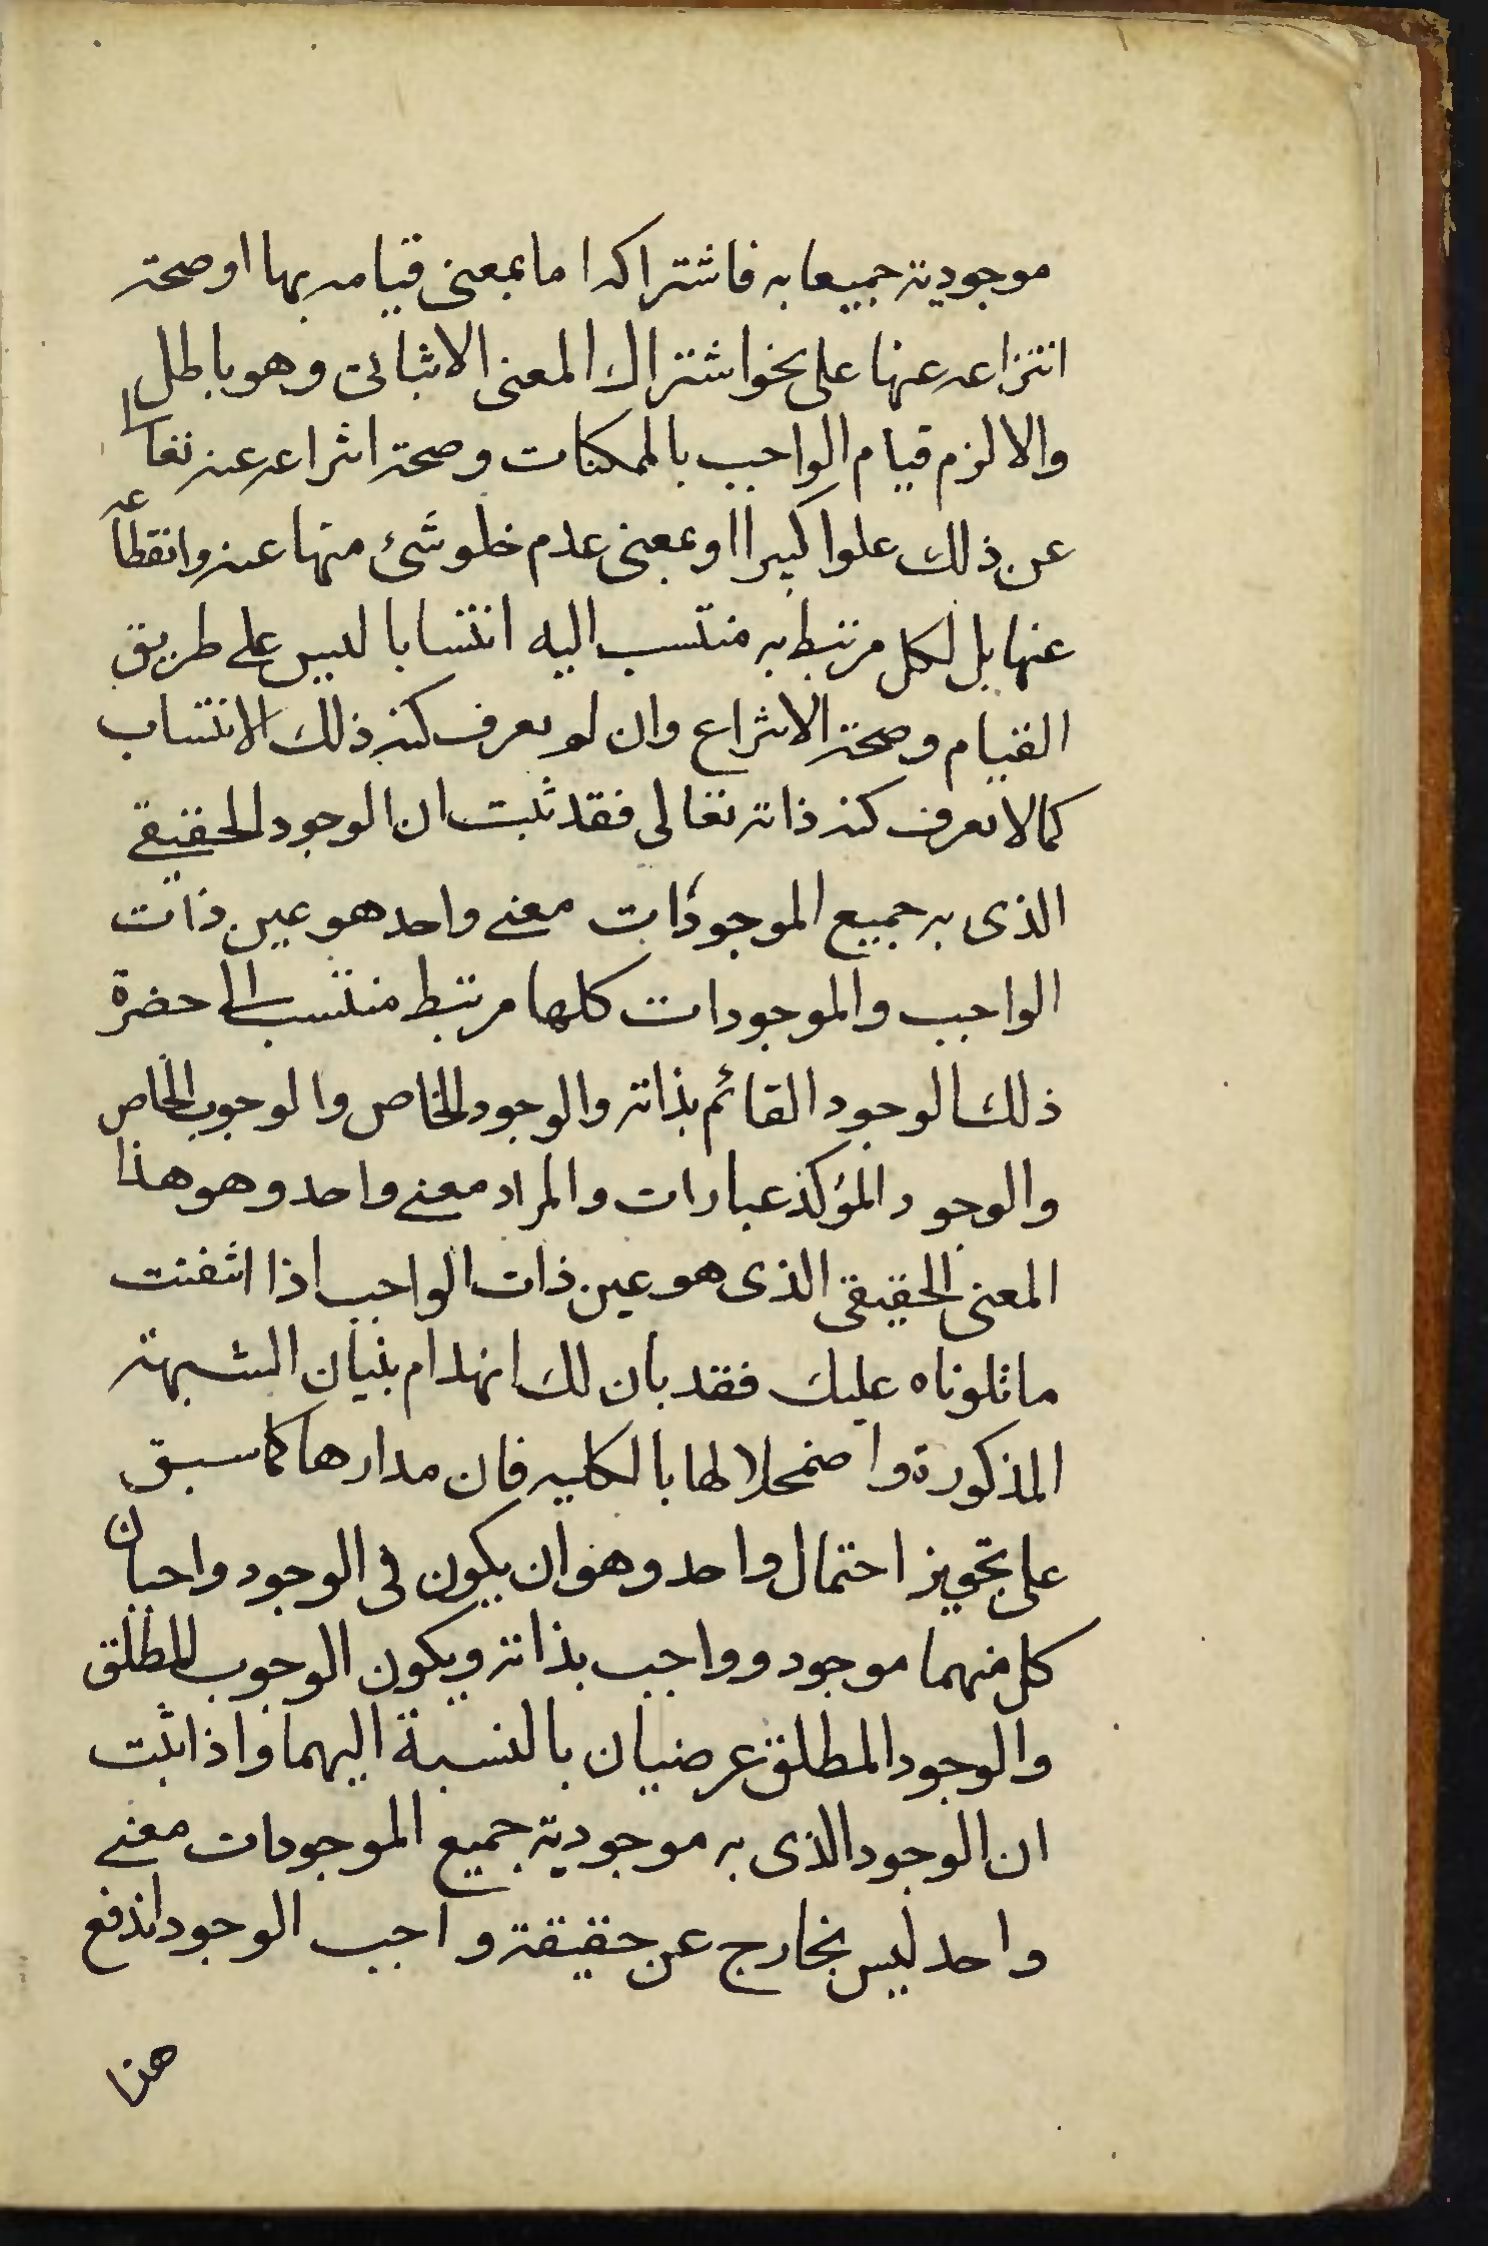 موجودية جميعا به فاشتراكه اما بمعنى قيامه بها او صحة
انتزاعه عنها على نحو اشتراك المعنى الاثباتى وهو باطل
والا لزم قيام الواجب بالممكنات وصحة انتزاعه عنه تعالى
عن ذلك علوا كبيرا او بمعنى عدم خلو شئ منها عنه وانقطاعه
عنها بل لكل مرتبط به منتسب اليه انتسابا ليس على طريق
القيام وصحة الانتزاع وان لم يعرف كنه ذلك الانتساب
كما لا يعرف كنه ذاته تعالى فقد ثبت ان الوجود الحقيقي
الذى به جميع الموجودات معنى واحد هو عين ذات
الواجب والموجودات كلها مرتبط منتسب الى حضرة
ذلك الوجود القائم بذاته والوجود الخاص والوجوب الخاص
والوجود المؤكد عبارات والمراد معنى واحد وهو هذا
المعنى الحقيقى الذى هو عين ذات الواجب اذا اتقنت
ما تلوناه عليك فقد بان لك انهدام بنيان الشبهة
المذكورة واضمحلالها بالكليه فان مدارها كما سبق
على تجويز احتمال واحد وهو ان يكون فى الوجود واجبان
كل منهما موجود وواجب بذاته ويكون الوجوب المطلق
والوجود المطلق عرضيان بالنسبة اليهما واذا ثبت
ان الوجود الذى به موجودية جميع الموجودات معنى
واحد ليس بخارج عن حقيقة واجب الوجود اندفع
هذا